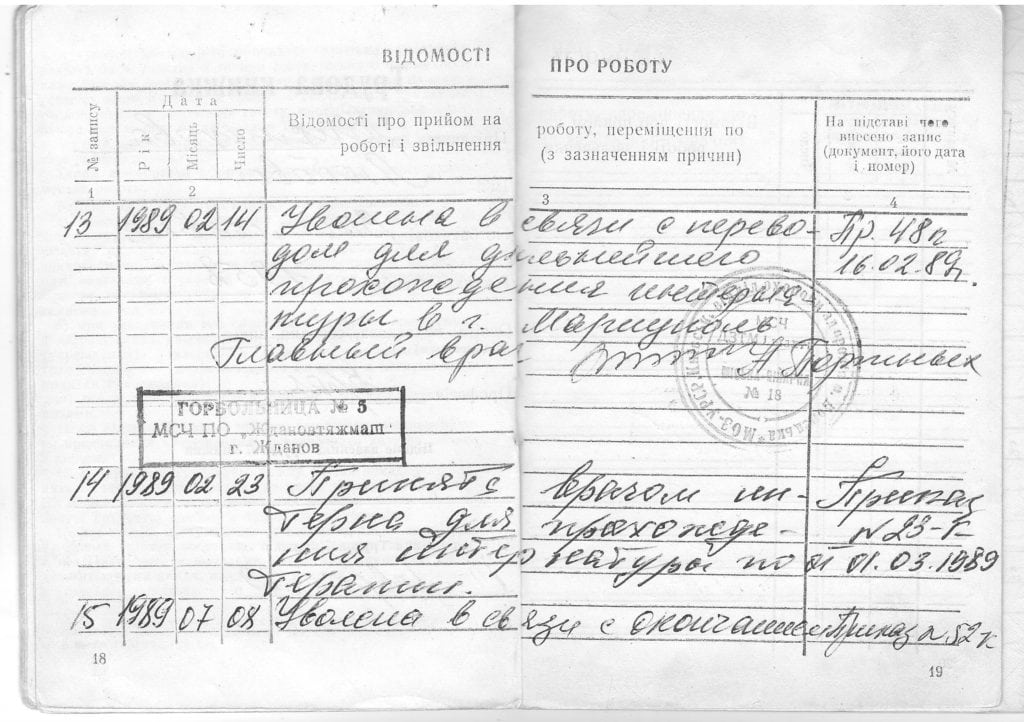 ВІДОМОСТІ ПРО РОБОТУ
№ запису
Дата
Рік
Місяць
Число
Відомості про прийом на роботу, переміщення по
роботі і звільнення (з зазначенням причин)
На підставі чего
внесено запис
(документ, його дата
і номер)
1 2 3 4
13 1989 02 14 Уволена в связи с перево- Пр. 48п
дом для дальнейшего 16.02.89г
прохождения интерна
туры в г. Мариуполь
Главный врач
МСЧ
№ 18
ГОРБОЛЬНИЦА № 5
МСЧ ПО „Ждановтяжмаш
г. Жданов
14 1989 02 23 Принята врачом ин- Приказ
терна для прохожде- №23-к
ния интернатуры по от 01.03.1989
терапии.
15 1989 07 08 Уволена в связи с окончанием Приказ № 52 к
18 19